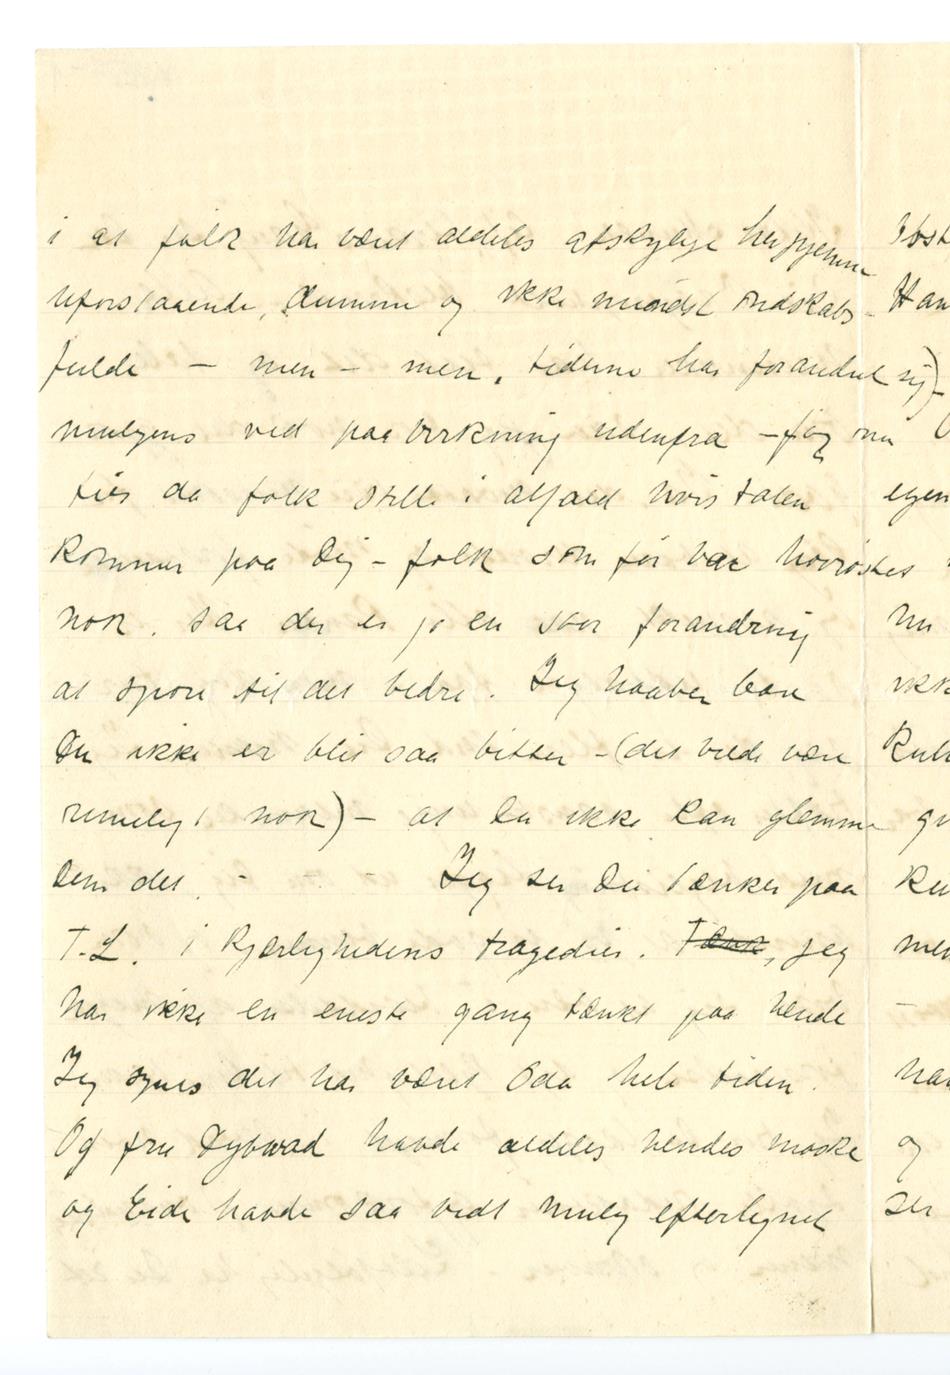 i at folk har været aldeles afskylige herhjemme
uforstaaende, dumme og ikke mindst ondskabs-
fulde – men – men, tiderne har forandret sig)
muligens ved paavirkning udenfra – og nu
ties da folk stille i alfald hvis talen
kommer paa Dig – folk som før var høirøstet
nok. saa der er jo en stor forandring
at spore til det bedre. Jeg haaber bare
Du ikke er blit saa bitter – (det vilde være
rimeligt nok) – at Du ikke kan glemme
Dem det. - - - - Jeg ser Du tænker paa
T.L. i Kjærlighedens tragedie. Tænk, jeg
har ikke en eneste gang tænkt paa hende
Jeg synes det har været Oda hele tiden.
Og fru Dybwad havde aldeles hendes maske
og Eide havde saa vidt mulig efterlignet
Han
egen
nu
ikke
og
ser